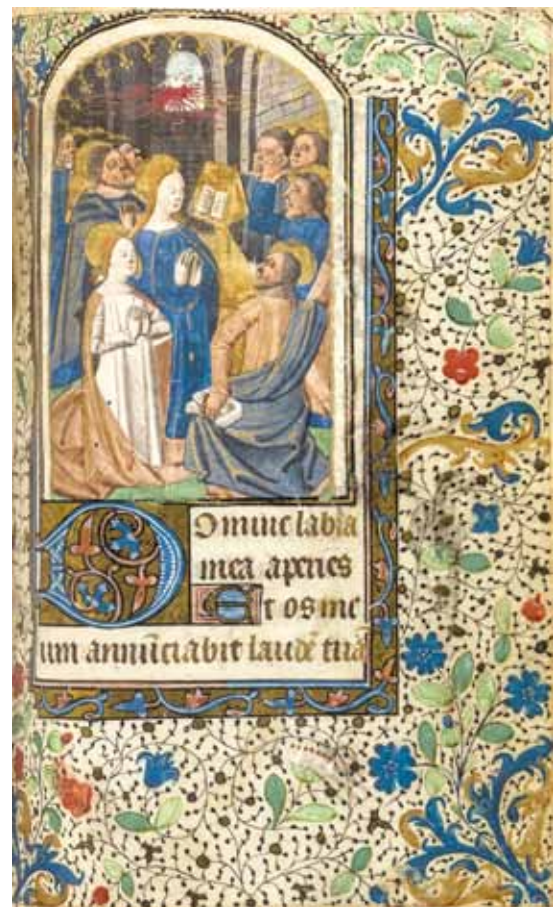 Domine labia
mea aperies
Et os me
um annūciabit laudē tuā